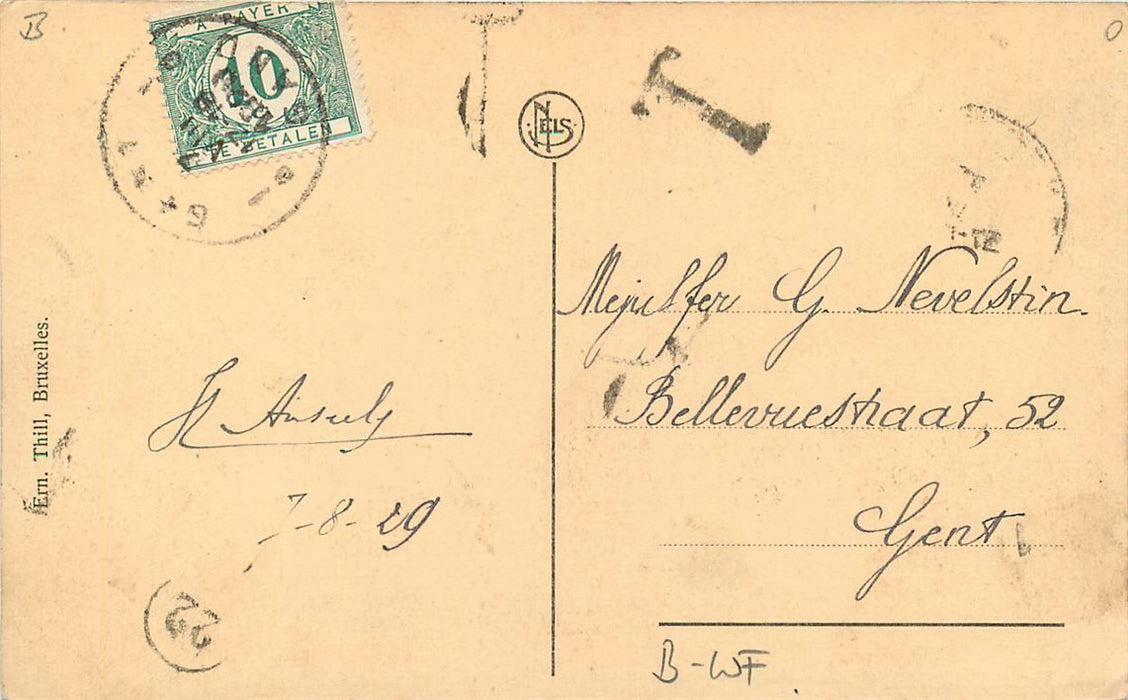 B
O
A PAYER
10
TE BETALEN
GENT
T
T
NELS
22
Ern. Thill, Bruxelles.
7-8-29
Mejuffer G. Nevelstin.
Bellevuestraat, 52
Gent
B-WF